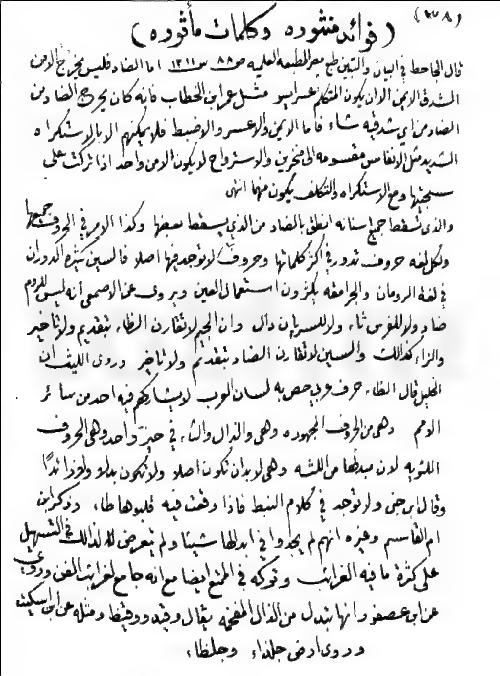 (٢٧٨)
(فوائد منثوره وكلمات مأثوره)
قال الجاحظ في البيان والتبين طبع مصر المطبعه العلميه ص ٨٨ س ١٣١١ اما الضاد فليس يخرج الا من
الشدق الايمن الا ان يكون المتكلم اعسر يسر مثل عمر ابن الخطاب فانه كان يخرج الضاد من
الضاد من اي شدقيه شاء فاما الايمن والاعسر والاضبط فلا يمكنهم الا بالاستكراه
الشديد مثل الانفاس مقسومه الى المنخرين والاسترواح لا يكون الا من واحد اذا تركت على
سجيتها ومع الاستكراه والتكلف يكون منهما انتهى
والذي تسقط جميع اسنانه انطق بالضاد من الذي يسقط بعضها وكذا الامر في الحروف جميعها
ولكل لغه حروف تدور في اكثر كلماتها وحروف لا توجد فيها اصلا فالسين كثيرة الدوران
في لغة الرومان والجرامقه يكثرون استعمال العين ويروى عن الاصمعي انه ليس للروم
ضاد ولا للفرس ثاء ولا للسريان ذال وان الجيم لا تقارن الظاء بتقديم ولا تاخير
والزاء كذالك والسين لا تقارن الضاد بتقديم ولا تاخير وروى الليث ان
الخليل قال الظاء حرف عربي خص به لسان العرب لا يشاركهم فيه احد من سائر
الامم وهي من الحروف المجهوره وهي والذال والثاء في حيز واحد وهي الحروف
اللثويه لان مبدئها من اللثه وهي لا بد ان تكون اصلا ولا تكون بدلا ولا زائدًا
وقال ابن جنى ولا توجد في كلام النبط فاذا وقعت فيه قلبوها طاء وذكر ابن
ام القاسم وغيره انهم لم يجدوا في ابدالها شيئا ولم يتعرض لذالك في التسهيل
على كثرة ما فيه الغرائب وتركه في الممتع ايضا مع انه جامع لغرائب الفن وروي
عن ابن عصفور انها تبدل من الذال يقال وقيذ ووقيظ ومثله عن ابن السكيت
وروى ارض جلذاء وجلظاء